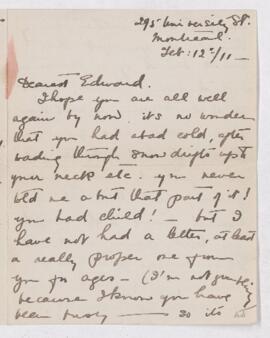 295 University St.
Montreal.
Feb: 12th/11 -
Dearest Edward.
I hope you are all well
again by now. it's no wonder
that you had a bad cold, after
wading through snow drifts up to
your neck etc. you never
told me about that part of it!
you bad child! - but I
have not had a letter, at least
a really proper one from
you for ages - (I'm not grumbling
because I know you have
been busy - so it's